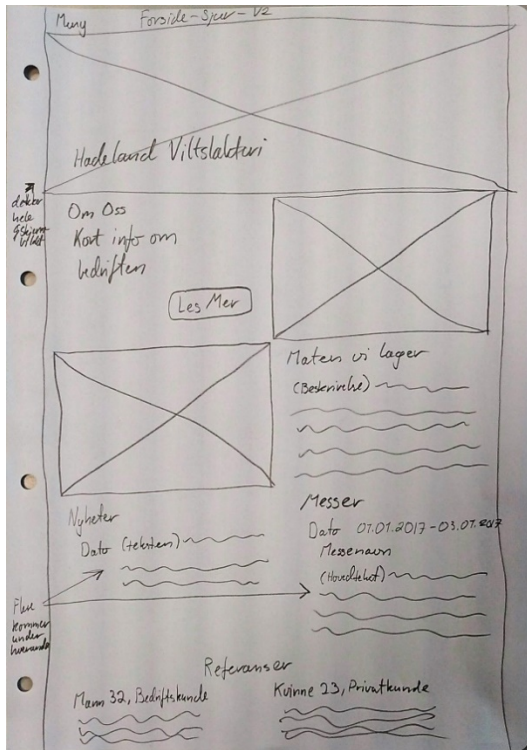 Meny
Forside-Sjur-V2
Hadeland Viltslakteri
dekker
hele
Om Oss
Kort info om
bedriften
Les Mer
Maten vi lager
(Beskrivelse)
Nyheter
Dato (teksten)
Messer
Dato 01.01.2017-03.01.2017
Messenavn
(Hovedtekst)
Flere
kommer
under
hverandre
Referanser
Mann 32, Bedriftskunde
Kvinne 23, Privatkunde